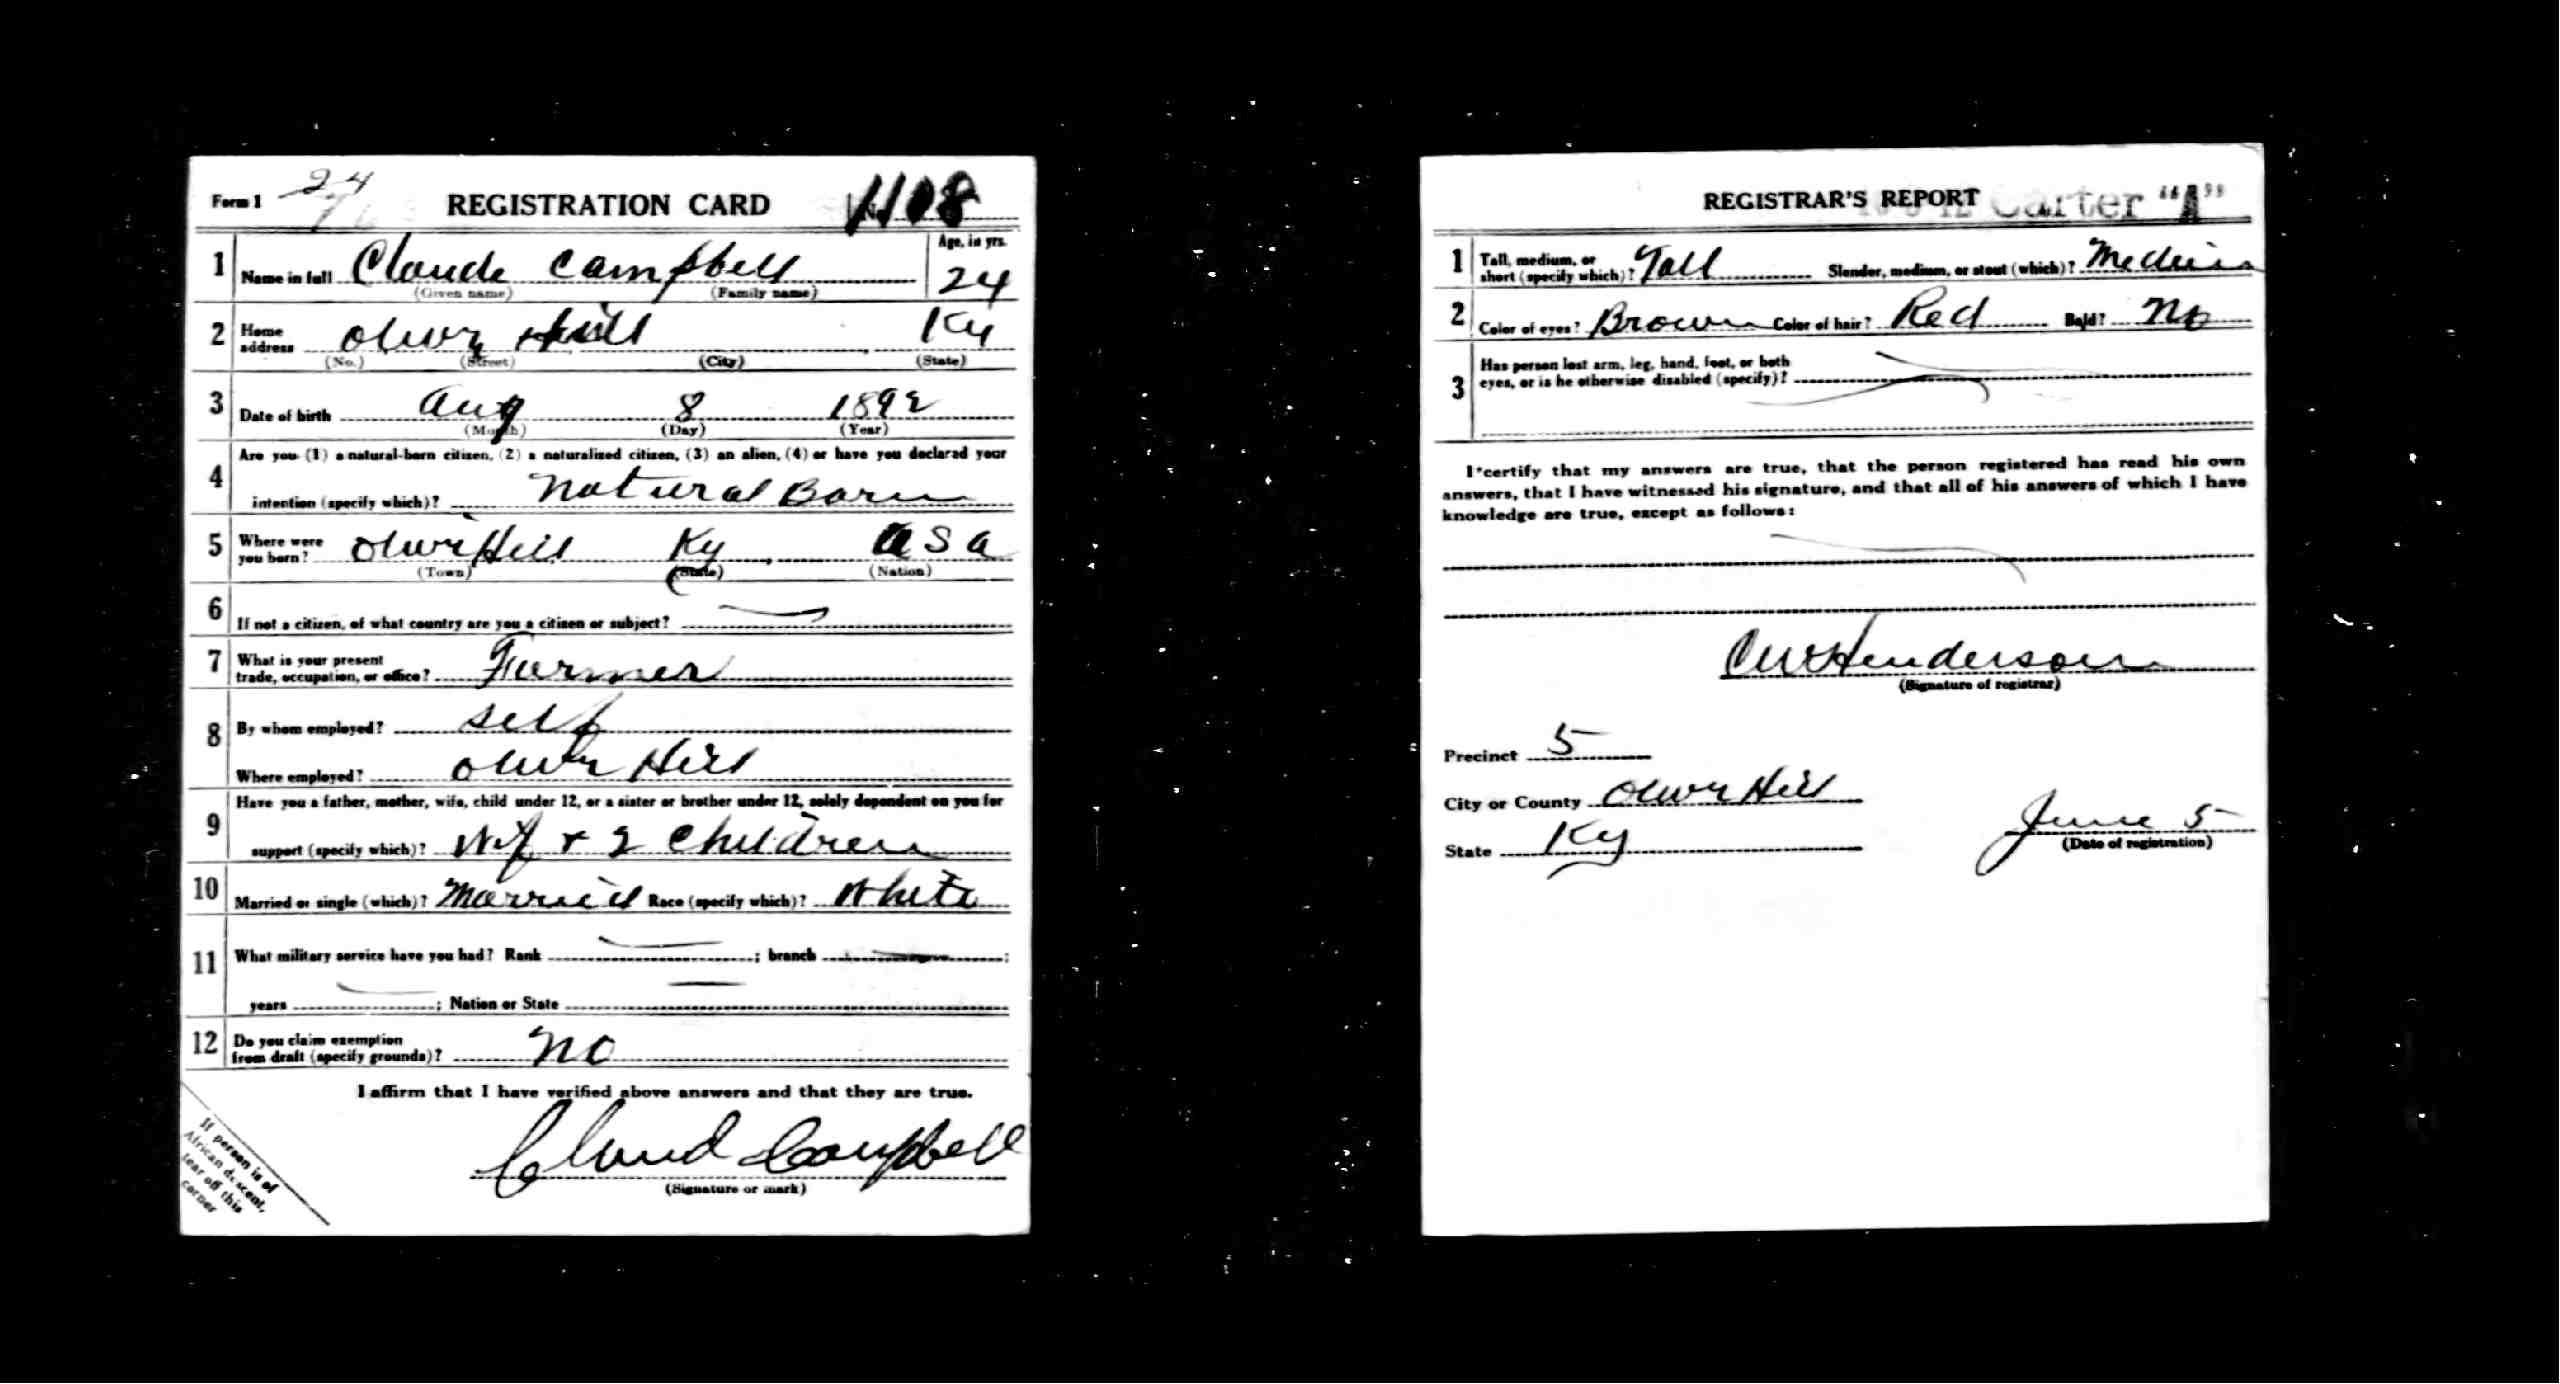 Form 1 24 REGISTRATION CARD No. 1108
1 Name in full Claude Campbell Age, in yrs.
(Given name) (Family name) 24
2 Home address Olive Hill Ky
(No.) (Street) (City) (State)
3 Date of birth Aug 8 1892
(Month) (Day) (Year)
4 Are you (1) a natural-born citizen, (2) a naturalized citizen, (3) an alien, (4) or have you declared your
intention (specify which)? Natural Born
5 Where were you born? Olive Hill Ky, USA
(Town) (State) (Nation)
6 If not a citizen, of what country are you a citizen or subject?
7 What is your present
trade, occupation, or office? Farmer
8 By whom employed? Self
Where employed? Olive Hill
9 Have you a father, mother, wife, child under 12, or a sister or brother under 12, solely dependent on you for
support (specify which)? Wif + 2 Children
10 Married or single (which)? Married Race (specify which)? White
11 What military service have you had? Rank ; branch ;
years ; Nation or State
12 Do you claim exemption
from draft (specify grounds)? No
I affirm that I have verified above answers and that they are true.
Claud Campbell
(Signature or mark)
If person is of
African descent,
tear off this
corner
REGISTRAR'S REPORT Carter "A"
1 Tall, medium, or
short (specify which)? Tall Slender, medium, or stout (which)? Medium
2 Color of eyes? Brown Color of hair? Red Bald? No
3 Has person lost arm, leg, hand, foot, or both
eyes, or is he otherwise disabled (specify)?
I certify that my answers are true, that the person registered has read his own
answers, that I have witnessed his signature, and that all of his answers of which I have
knowledge are true, except as follows:
Henderson
(Signature of registrar)
Precinct 5
City or County Olive Hill
State Ky June 5
(Date of registration)